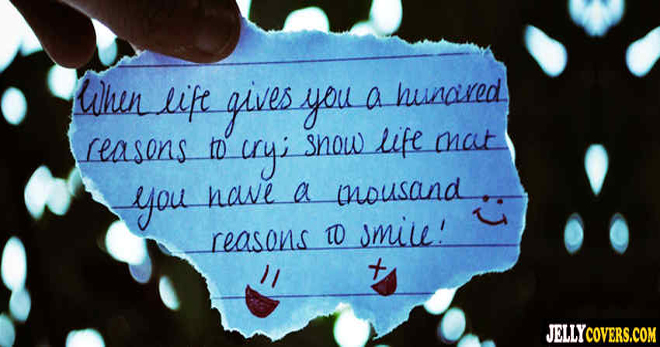 When life gives you a hundred
reasons to cry; show life that
you have a thousand
reasons to smile!
JELLYCOVERS.COM